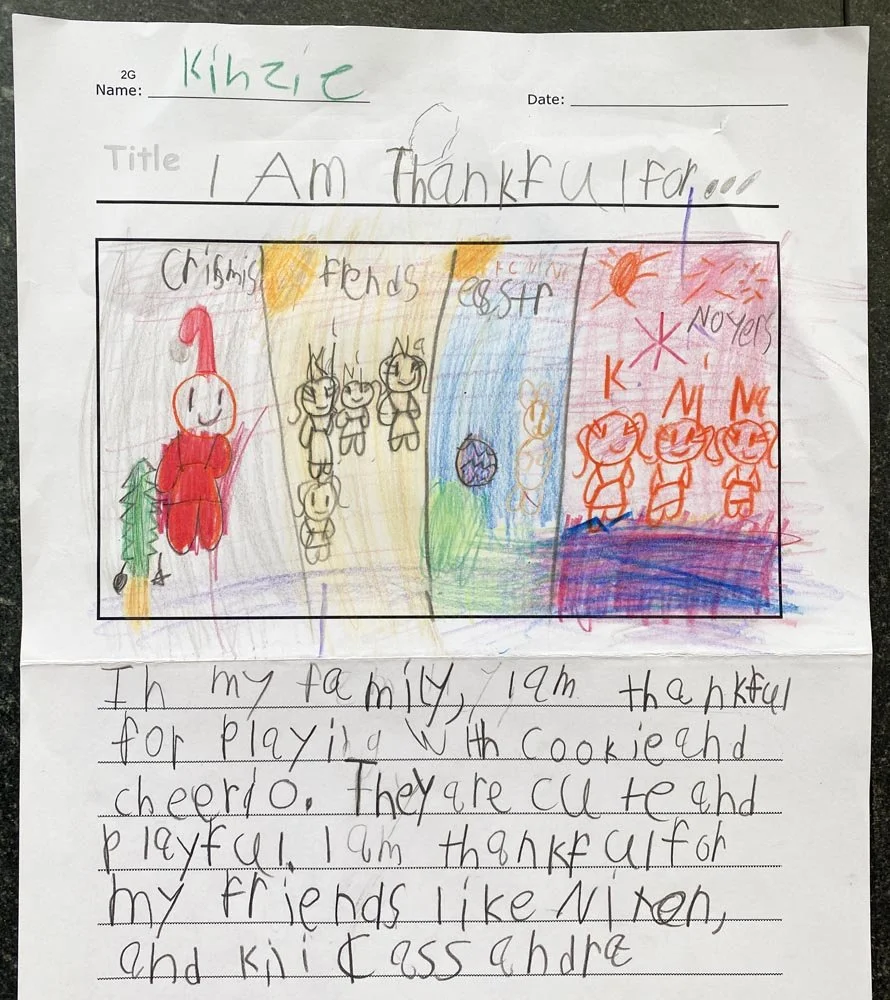 2G
Name: Kinzie
Date:
Title I Am Thankful for...
Crismis
friends
eastr
Noyers
Ki Ni Na
K Ni Na
In my family, I am thankful
for playing with Cookie and
cheerio. They are cute and
playful. I am thankful for
my friends like Nixon,
and Kiki Cassandra